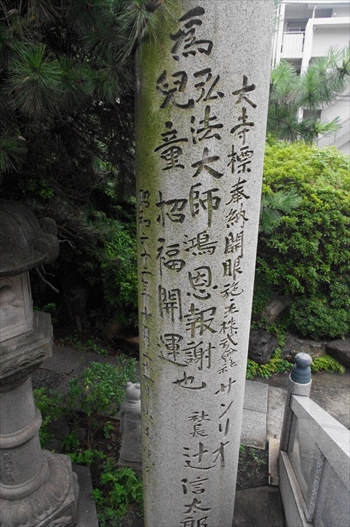 大寺標奉納開眼施主株式会社サンリオ
社長辻信太郎
弘法大師鴻恩報謝也
為児童招福開運